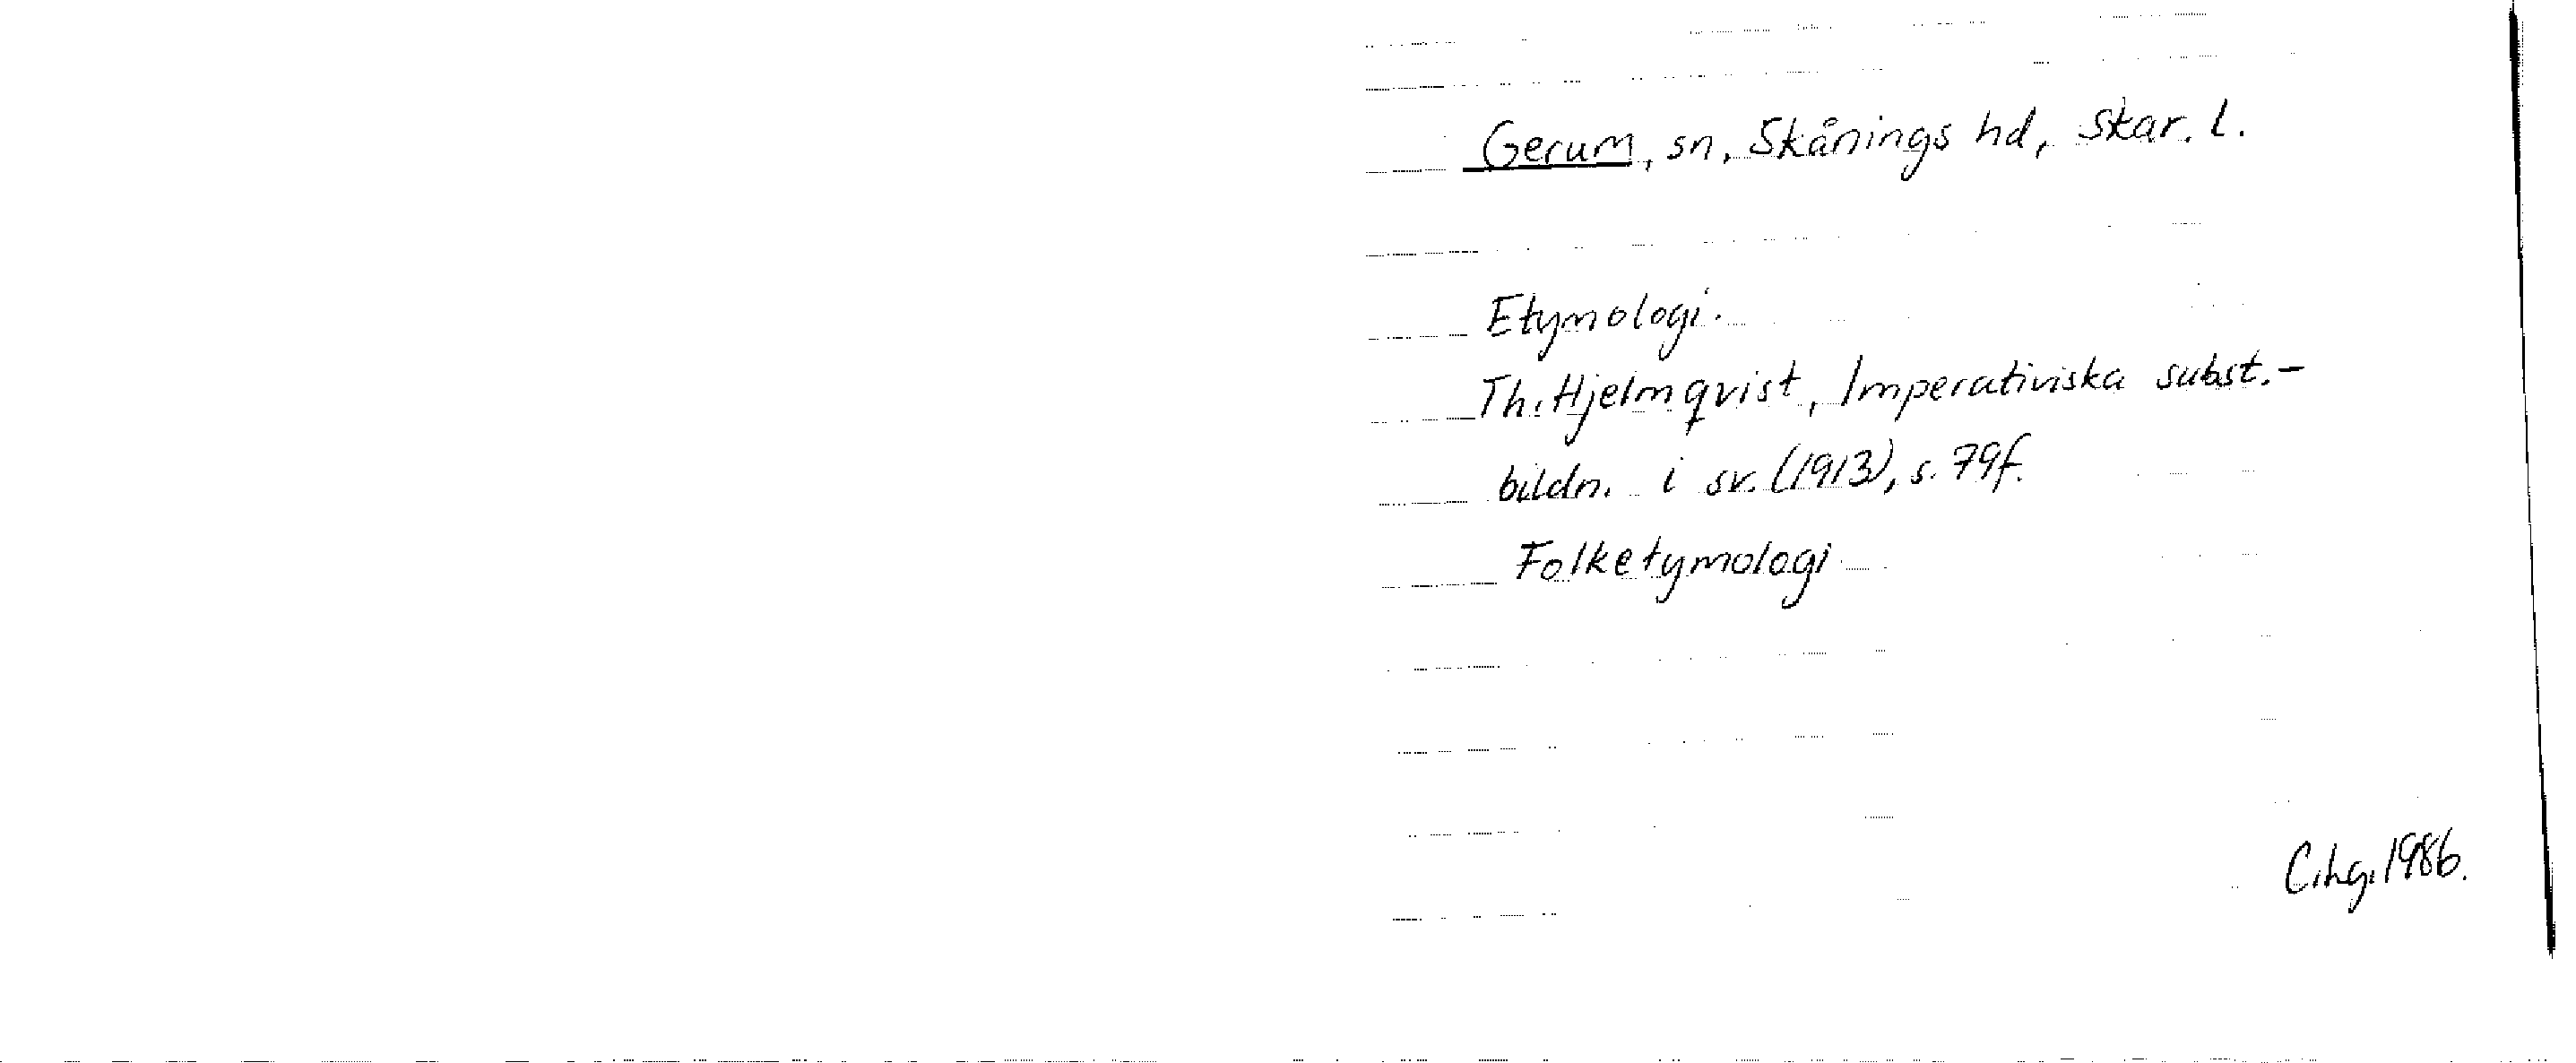 Gerum, sn, Skånings hd, Skar. l.
Etymologi.
Th. Hjelmqvist, Imperativiska subst.-
bildn. i sv. (1913), s. 79f.
Folketymologi
C.hg. 1986.